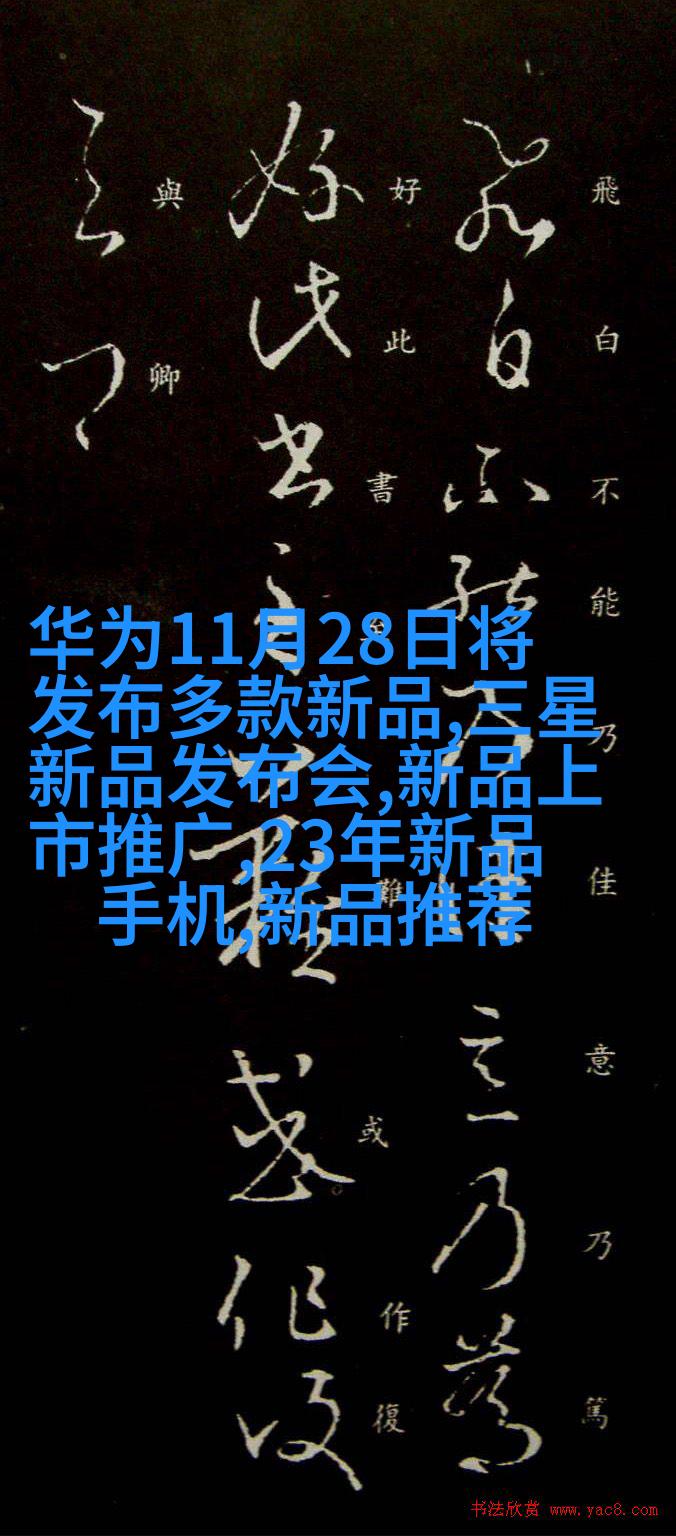 华为11月28日将
发布多款新品,三星
新品发布会,新品上
市推广,23年新品
手机,新品推荐
飛白不能乃佳意乃篤
好此書難或作復
與卿
书法欣赏 www.yac8.com